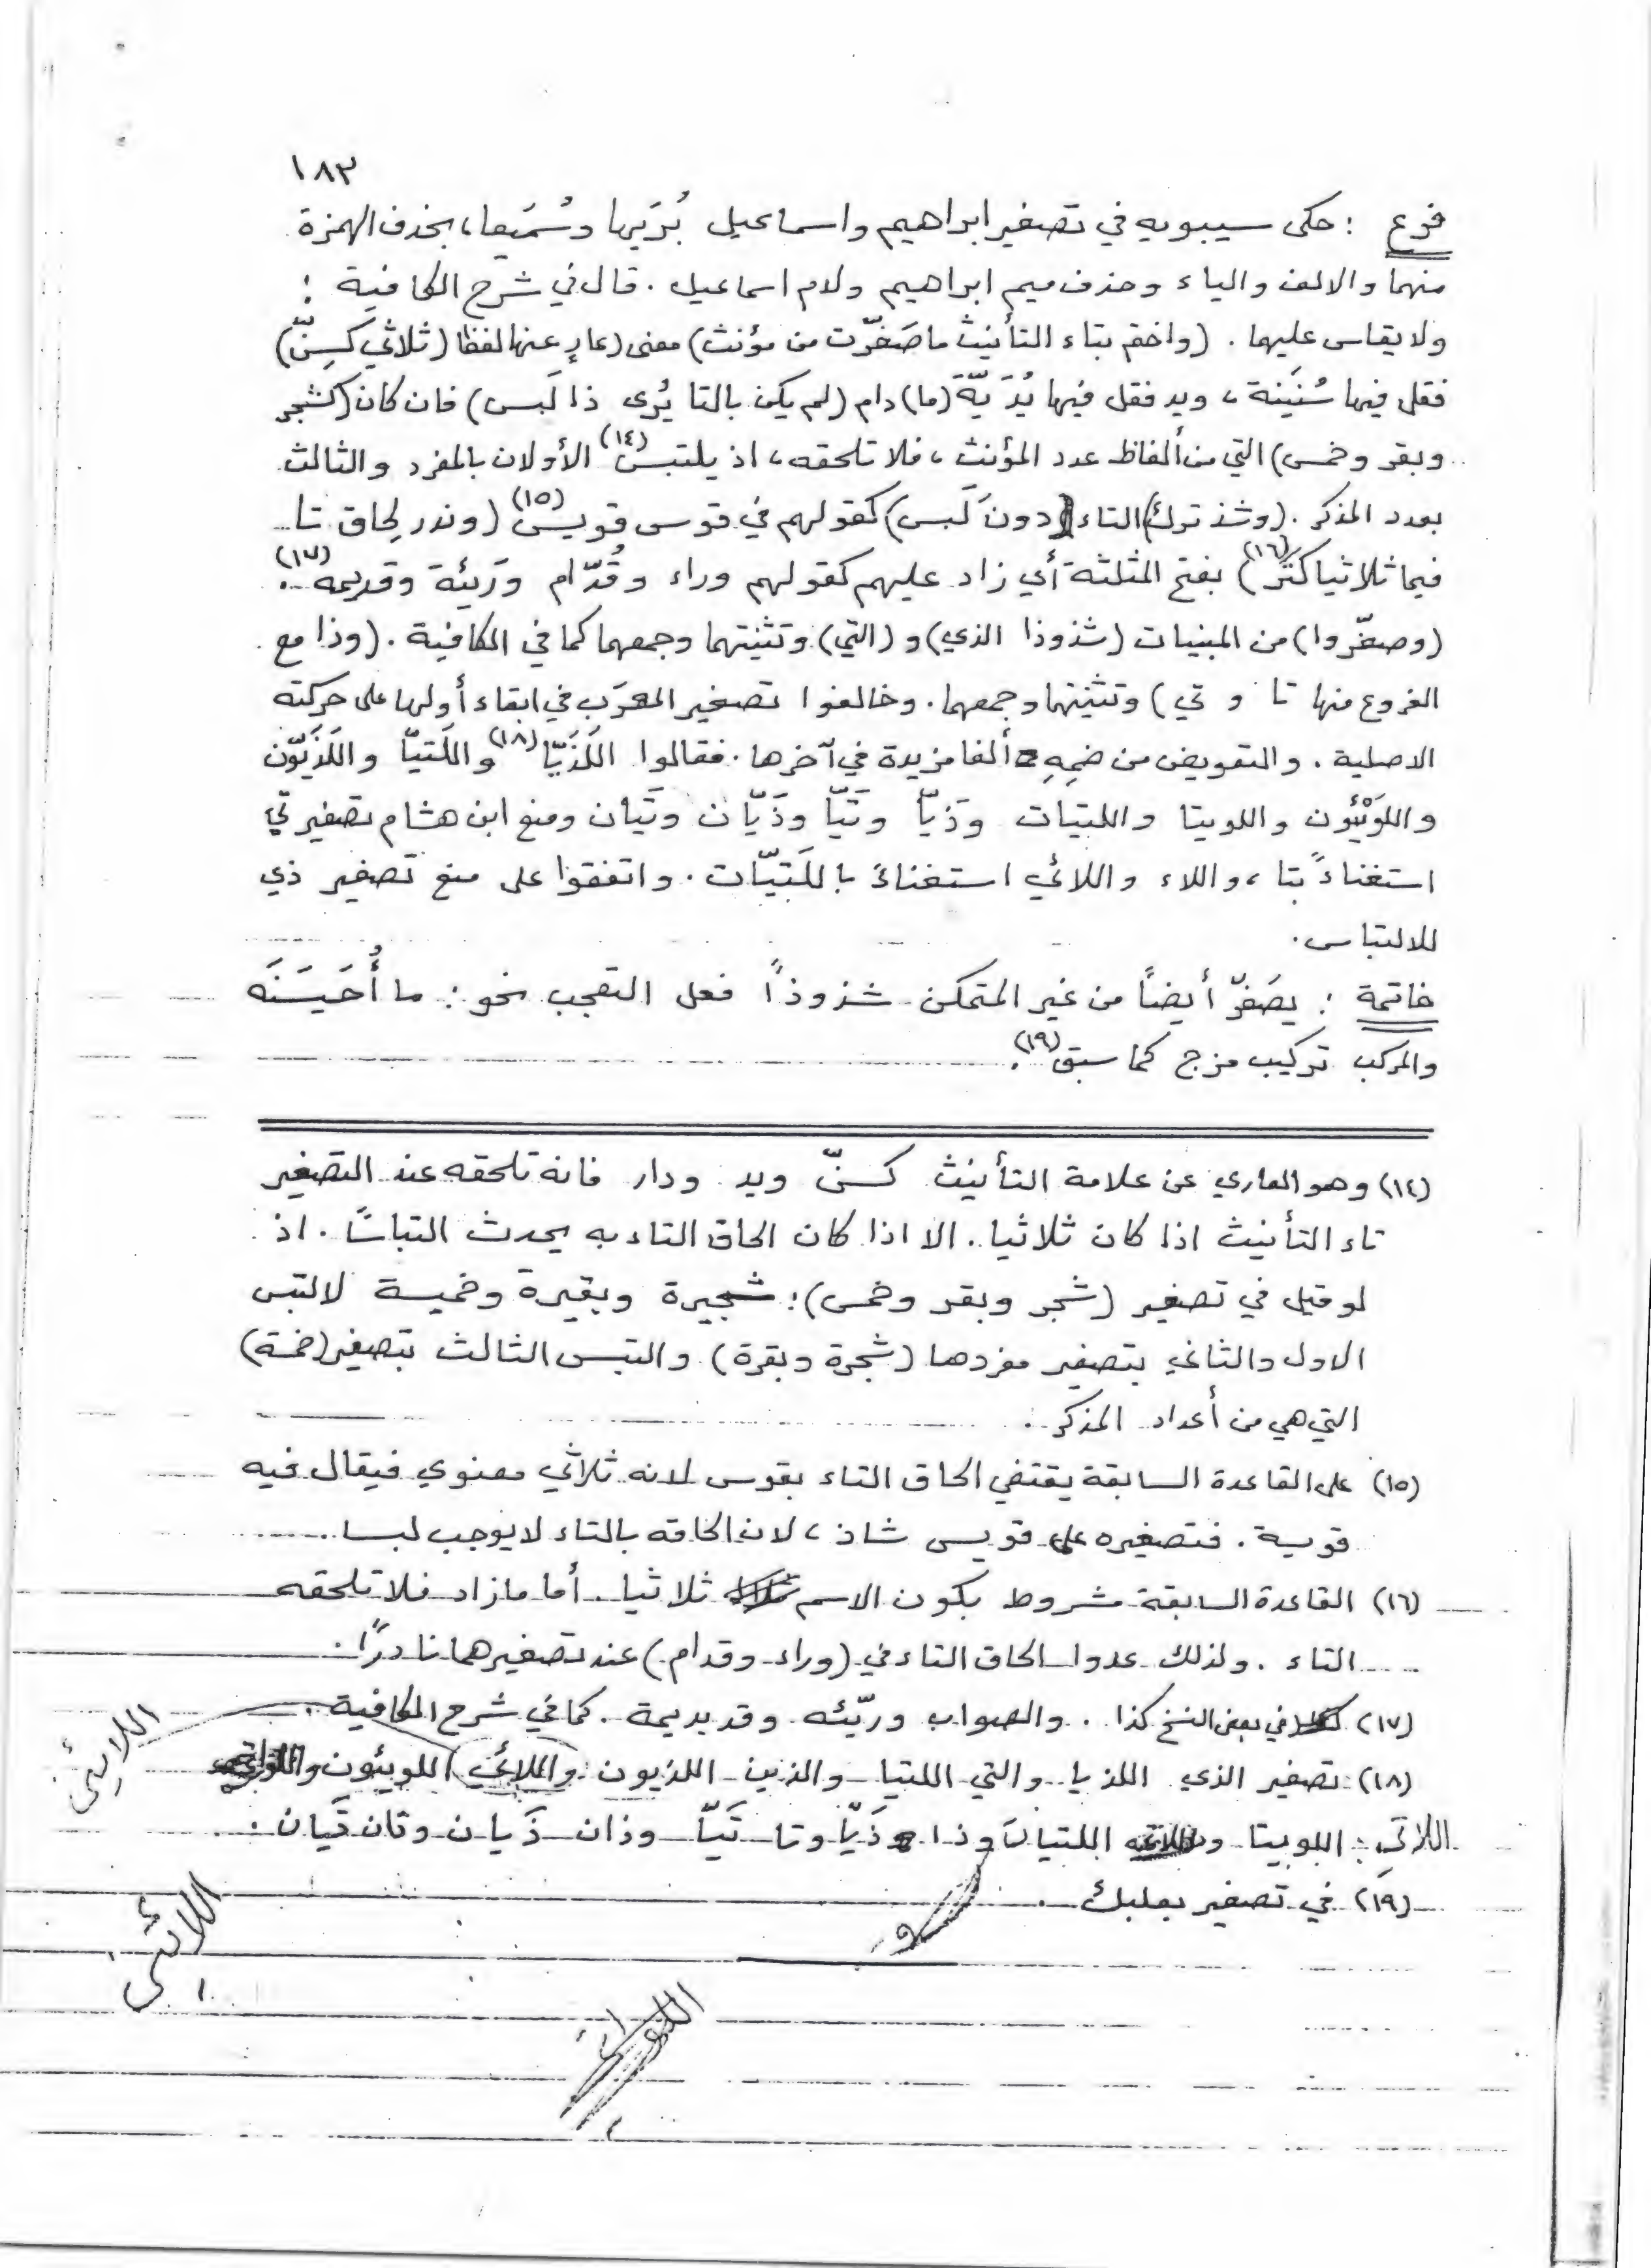 ١٨٣
فرع : حكى سيبويه في تصغير ابراهيم واسماعيل بُرَيها وسُمَيعا، بحذف الهمزة
منهما والالف والياء وحذف ميم ابراهيم ولام اسماعيل . قال في شرح الكافية :
ولا يقاس عليهما . (واختم بتاء التأنيث ما صَغّرت من مؤنث) معنى (عارٍ عنها لفظا (ثلاثي كسِنّ)
فقل فيها سُنَينة ، ويد فقل فيها يُدَيّة (ما) دام (لم يكن بالتا يُرى ذا لَبس) فان كان (كشجر
وبقر وخمس) التي من ألفاظ عدد المؤنث ، فلا تلحقه ، اذ يلتبس(١٤) الأولان بالمفرد والثالث
بعدد المذكر . (وشذ ترك) التاء (دونَ لَبس) كقولهم في قوس قويس(١٥) (وندر لِحاق تا
فيما ثلاثيا كثَر(١٦)) بفتح المثلثة أي زاد عليهم كقولهم وراء وقُدّام ورَيئة وقديمه(١٧) .
(وصغّروا) من المبنيات (شذوذا الذي) و (التي) وتثنيتهما وجمعهما كما في الكافية . (وذا مع
الفروع منها تا و تي) وتثنيتهما وجمعهما . وخالفوا تصغير المعرَب في ابقاء أولها على حركته
الاصلية . والتعويض من ضمِهِ ألفا مزيدة في آخرها . فقالوا اللَذَيّا(١٨) واللَتيّا واللَذَيّون
واللوَيْئِون واللويتا واللتيات وَذَيّا وتَيّا وذَيّان وتَيان ومنع ابن هشام تصغير تي
استغناءً بتا ، واللاء واللائي استغناءً باللَتيّات . واتفقوا على منع تصغير ذي
للالتباس .
خاتمة : يصَغّر أيضاً من غير المتمكن شذوذاً فعل التعجب نحو : ما أُحَيسَنَه
والمركب تركيب مزج كما سبق(١٩) .
(١٤) وهو العاري عن علامة التأنيث كسنّ ويد ودار فانه تلحقه عند التصغير
تاء التأنيث اذا كان ثلاثيا . الا اذا كان الحاق التاء به يحدث التباسًا . اذ
لو قيل في تصغير (شجر وبقر وخمس) : شجيرة وبقيرة وخميسة لالتبس
الاول والثاني بتصغير مفردها (شجرة وبقرة) والتبس الثالث بتصغير (خمسة)
التي هي من أعداد المذكر .
(١٥) على القاعدة السابقة يقتضي الحاق التاء بقوس لانه ثلاثي معنوي فيقال فيه
قويسة . فتصغيره على قويس شاذ ، لان الحاقه بالتاء لا يوجب لبسا .
(١٦) القاعدة السابقة مشروط بكون الاسم ثلاثيا . أما مازاد فلا تلحقه
التاء . ولذلك عدوا الحاق التاء في (وراء وقدام) عند تصغيرهما نادرًا .
(١٧) في بعض النسخ كذا . والصواب وريّئه وقديديمة . كما في شرح الكافية .
(١٨) تصغير الذي اللذيا والتي اللتيا والذين اللذيون واللائي اللويئون
اللاتي : اللويتا اللتيان وذا ذَيّا وتا تَيّا وذان ذَيان وتان تَيان .
(١٩) في تصغير بعلبك .
اللائين
اللائين